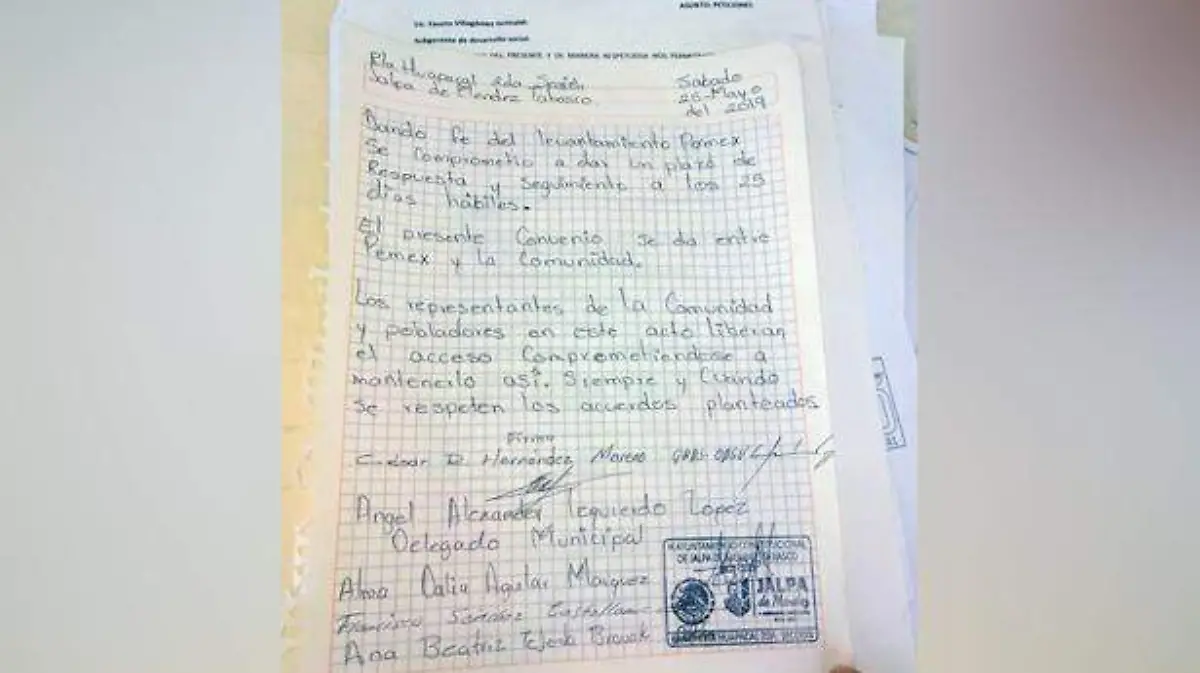 ASUNTO: PETICIONES
Lic. Fausto Villagómez
Subgerente de desarrollo social
DEL PRESENTE Y DE MANERA RESPETUOSA NOS
Ria Huapacal 2da Sección Sabado
Jalpa de Mendez Tabasco 25-Mayo
del 2019
Dando fe del levantamiento Pemex
Se Comprometio a dar un plazo de
Respuesta y seguimiento a los 25
días hábiles.
El presente Convenio se da entre
Pemex y la Comunidad.
Los representantes de la Comunidad
y pobladores en este acto liberan
el acceso Comprometiendose a
mantenerlo así. Siempre y Cuando
se respeten los acuerdos planteados
Firma
D. Hernández Moreno
Angel Alexander Izquierdo Lopez
Delegado Municipal
Alma Dalia Aguilar Marquez
Francisco Sanchez
Ana Beatriz Tejeda
H. AYUNTAMIENTO CONSTITUCIONAL
DE JALPA DE MENDEZ TABASCO
JALPA
de Méndez